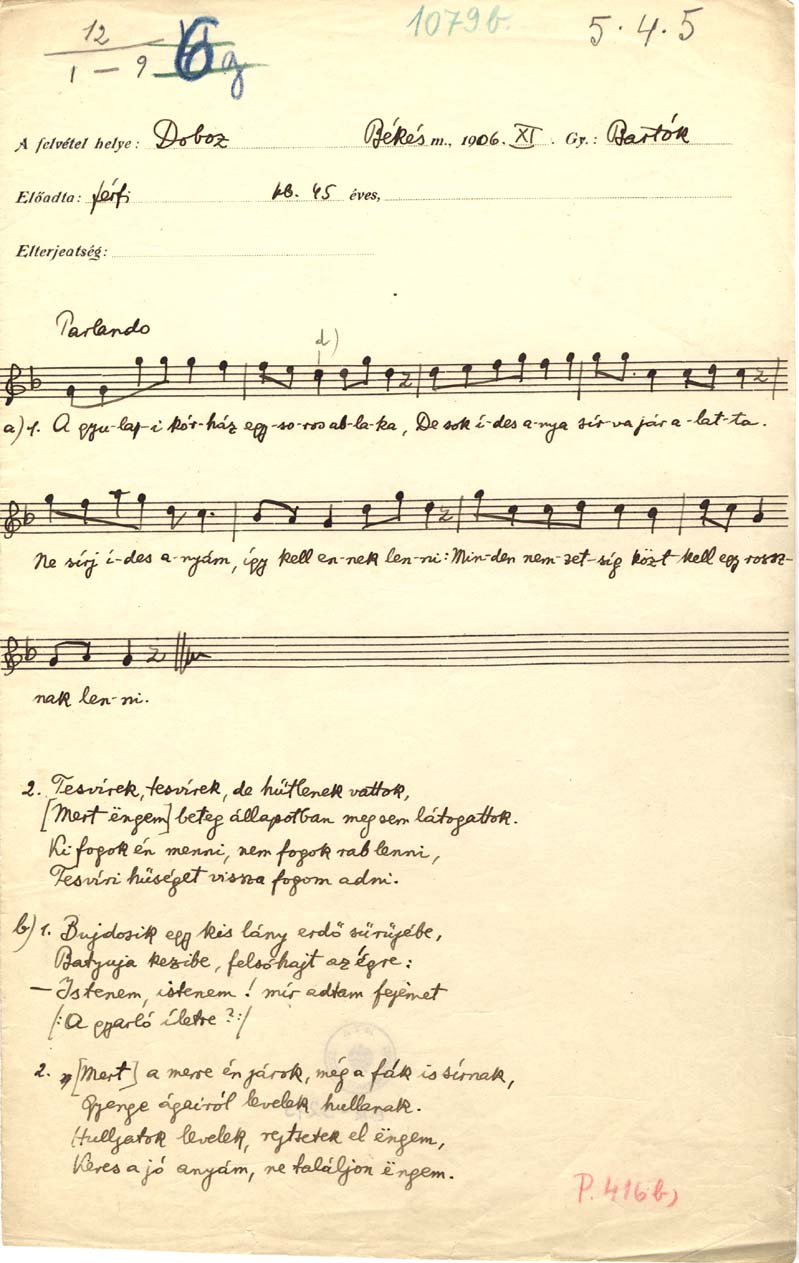 12
1 – 9
6
g
1079b.
5.4.5
A felvétel helye: Doboz Békés m., 1906. XI. Gy.: Bartók
Előadta: férfi kb. 45 éves,
Elterjeatség:
Parlando
d)
a) 1. A gyu-lap-i kór-ház egy-so-ros ab-la-ka, De sok í-des a-nya sír-va jár a-lat-ta.
Ne sírj í-des a-nyám, így kell en-nek len-ni: Min-den nem-zet-síg közt kell egy rossz-
nak len-ni.
2. Tesvírek, tesvírek, de hűtlenek vattok,
[Mert ëngem] beteg állapotban megsem látogattok.
Ki fogok én menni, nem fogok rab lenni,
Tesvíri hűséget vissza fogom adni.
b) 1. Bujdosik egy kis lány erdő sűrűjébe,
Batyuja kezibe, felsóhajt az égre:
– Istenem, istenem! mír adtam fejemet
/: A gyarló íletre?:/
2. „[Mert] a merre én járok, még a fák is sírnak,
Gyenge ágairól levelek hullanak.
Hulljatok levelek, rejtsetek el ëngem,
Keres a jó anyám, ne találjon ëngem.
P. 416b)